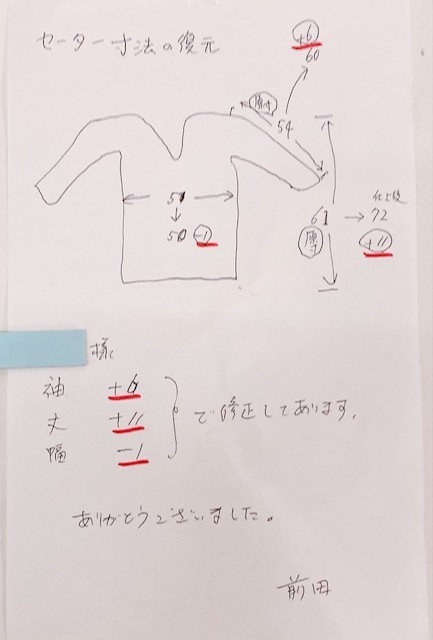 セーター寸法の復元
+6
60
原寸
54
51
50 -1
61 → 72
仕上後
原寸
+11
様
袖 +6
丈 +11
幅 -1
で修正してあります。
ありがとうございました。
前田